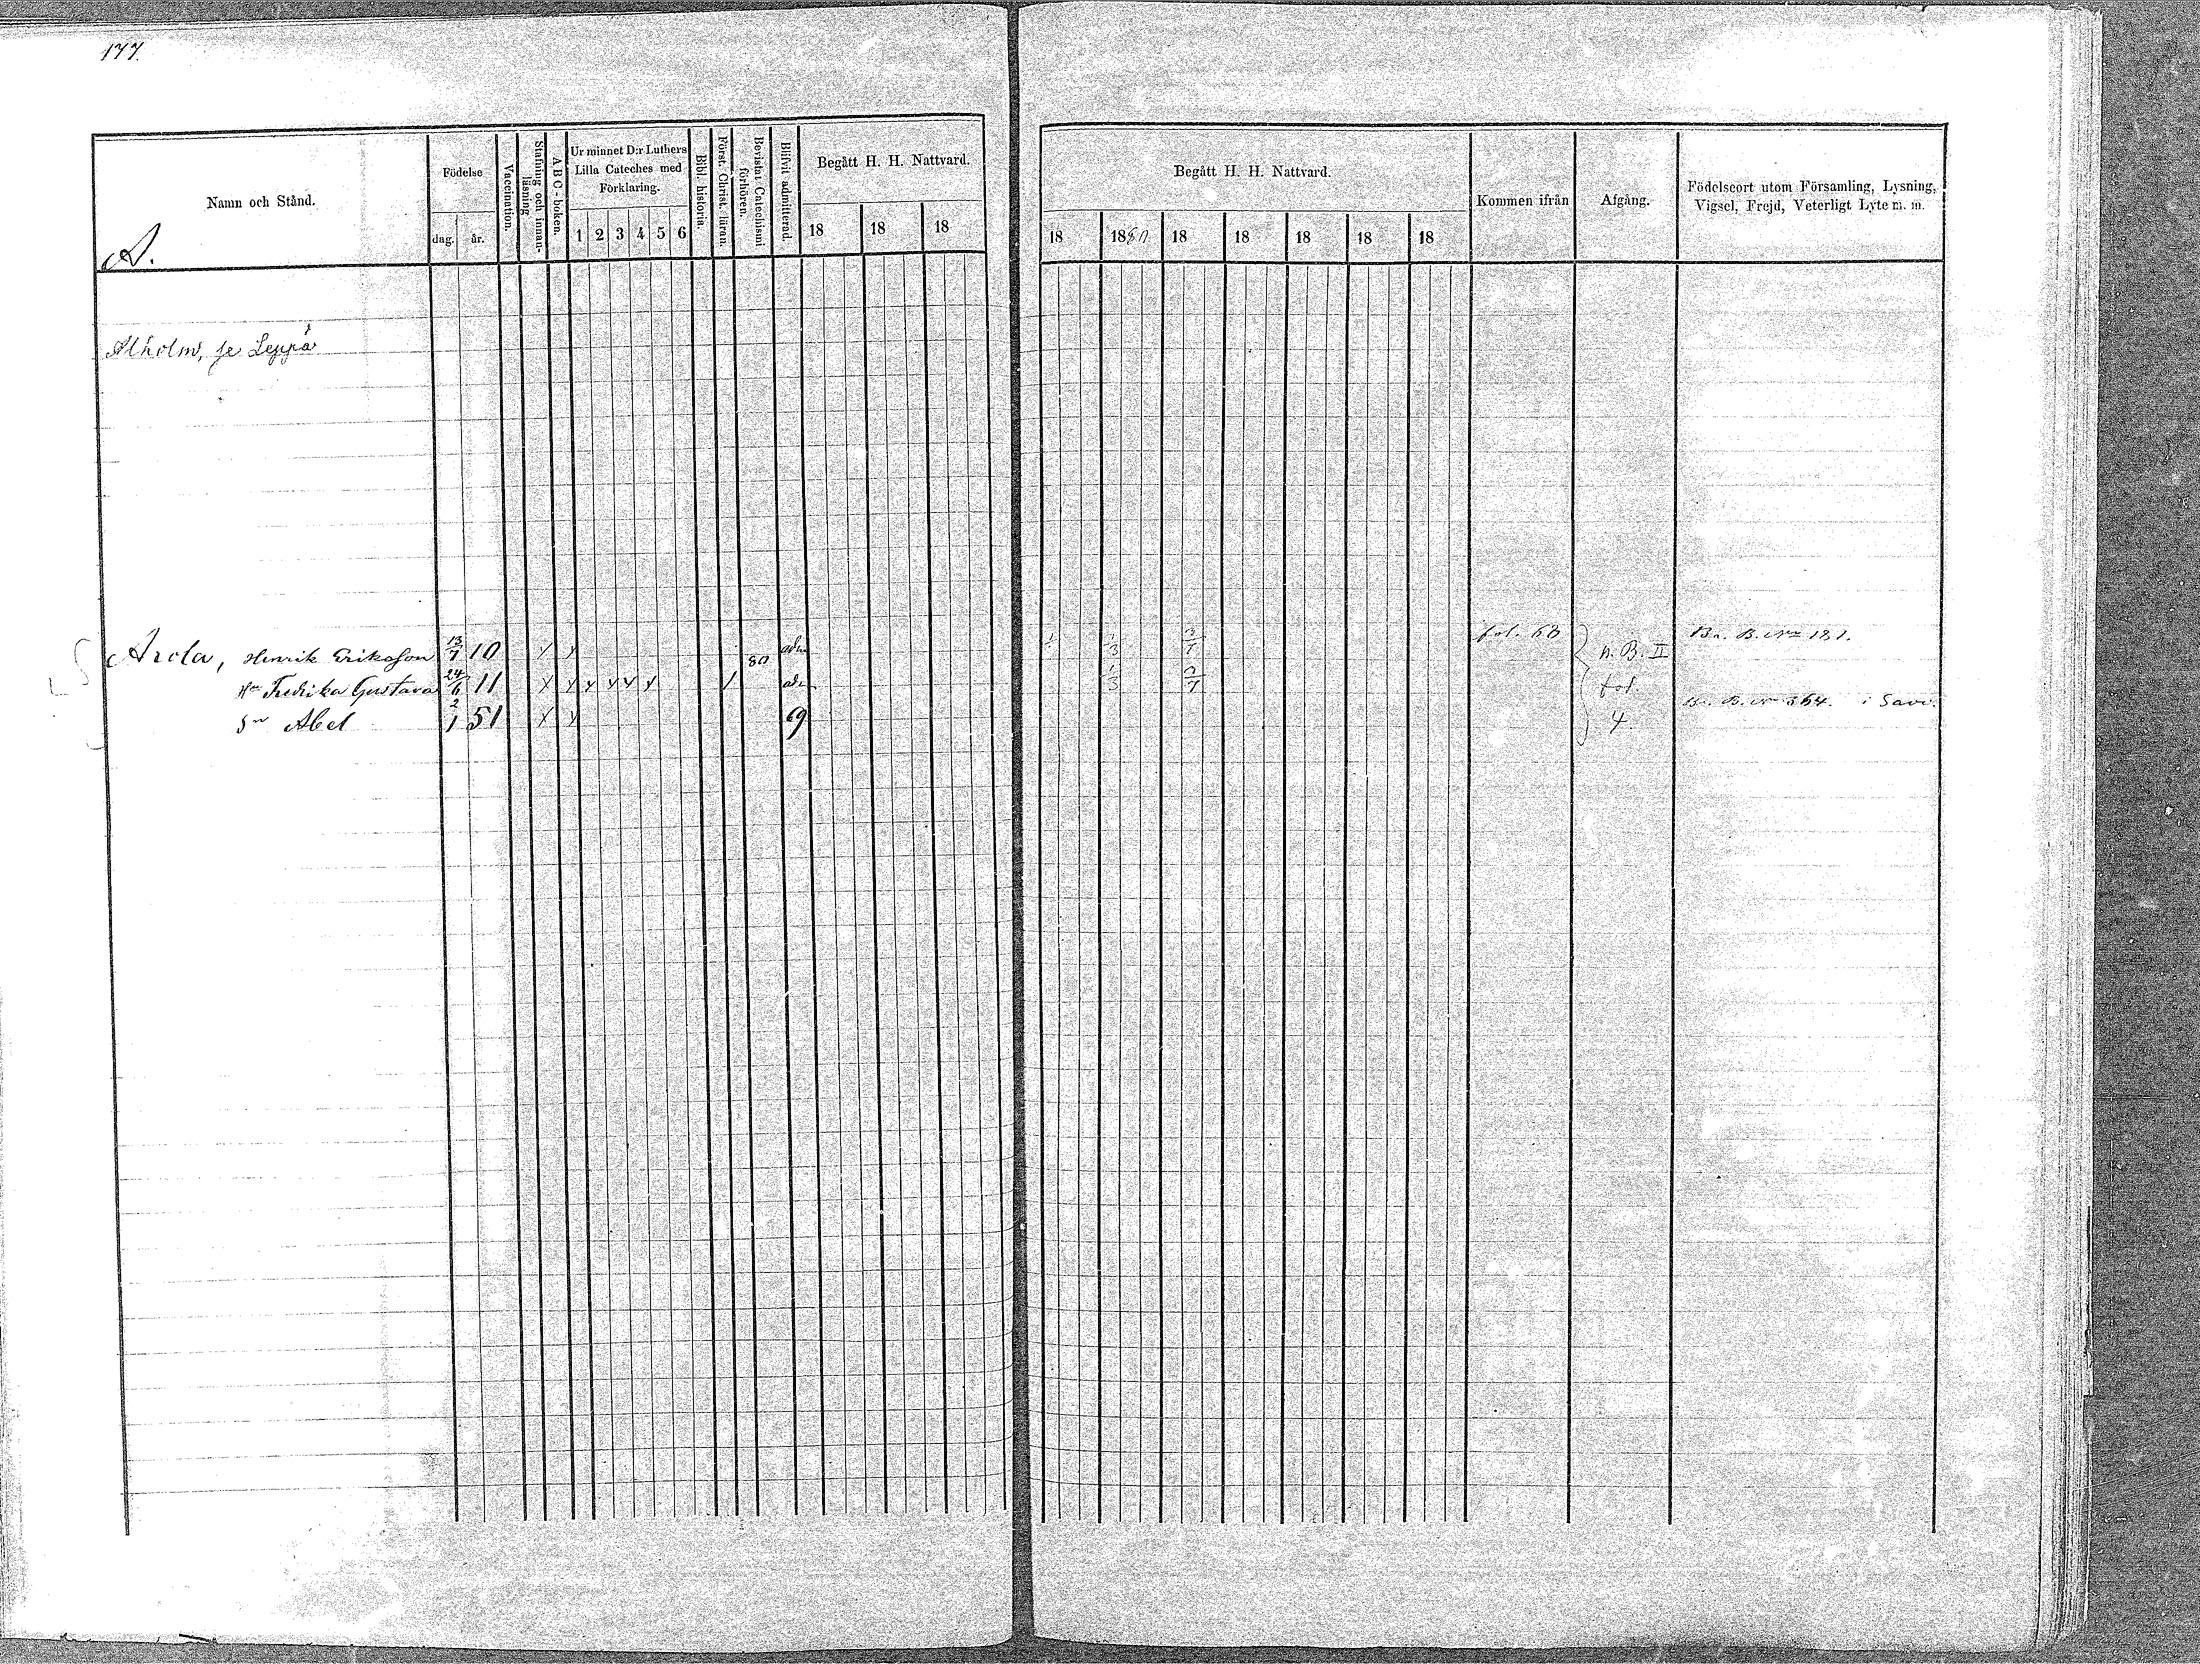 177.
Namn och Stånd.
A.
Födelse
dag. år.
Vaccination.
Stafning och innanläsning
A B C-boken.
Ur minnet D:r Luthers
Lilla Cateches med
Förklaring.
1 2 3 4 5 6
Bibl. historia.
Först. Christ. läran.
Bevistat Catechismi förhören.
Blifvit admitterad.
Begått H. H. Nattvard.
18 18 18
Begått H. H. Nattvard.
18 1880 18 18 18 18 18
Kommen ifrån
Afgång.
Födelseort utom Församling, Lysning,
Vigsel, Frejd, Veterligt Lyte m. m.
Alholm, se Leppä
Arola, Henrik Eriksson 13/7 10 80 adm 1/3 3/7 fol. 63 n. B. II Bn. B. No 181.
Hu Fredrika Gustava 24/6 11 adm 1/3 3/7 fol.
Sn Abel 2/1 51 69 4 B. No 364. i Savi.